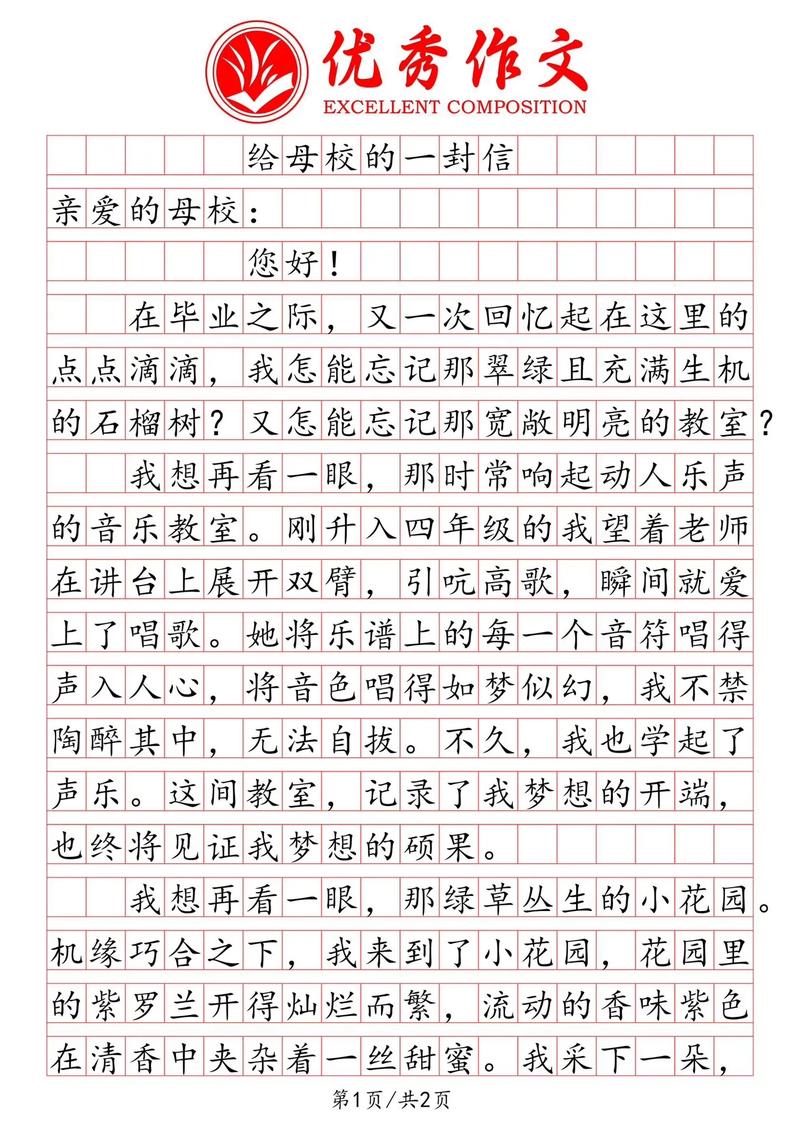 优秀作文
EXCELLENT COMPOSITION
给母校的一封信
亲爱的母校：
您好！
在毕业之际，又一次回忆起在这里的
点点滴滴，我怎能忘记那翠绿且充满生机
的石榴树？又怎能忘记那宽敞明亮的教室？
我想再看一眼，那时常响起动人乐声
的音乐教室。刚升入四年级的我望着老师
在讲台上展开双臂，引吭高歌，瞬间就爱
上了唱歌。她将乐谱上的每一个音符唱得
声入人心，将音色唱得如梦似幻，我不禁
陶醉其中，无法自拔。不久，我也学起了
声乐。这间教室，记录了我梦想的开端，
也终将见证我梦想的硕果。
我想再看一眼，那绿草丛生的小花园。
机缘巧合之下，我来到了小花园，花园里
的紫罗兰开得灿烂而繁，流动的香味紫色
在清香中夹杂着一丝甜蜜。我采下一朵，
第1页/共2页